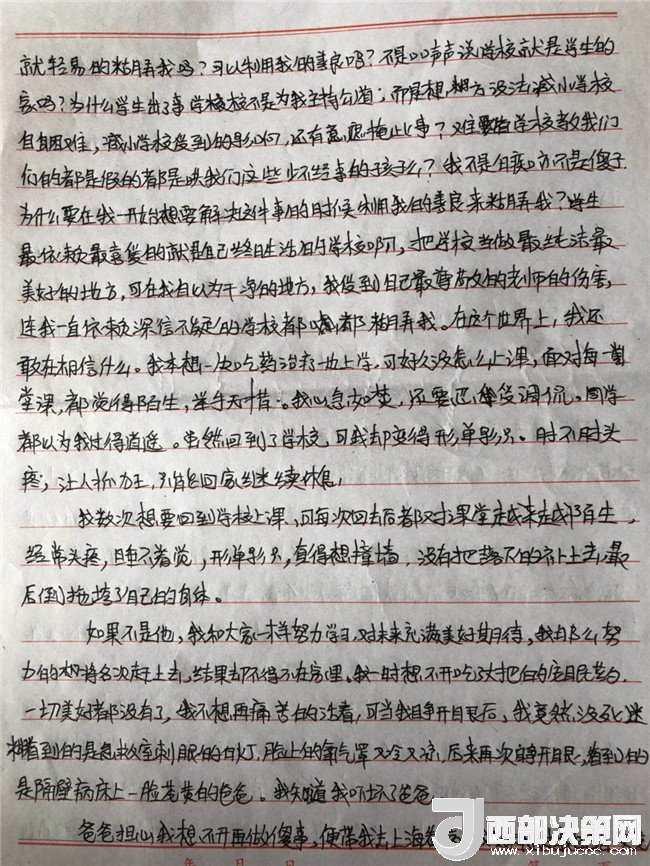 就轻易的糊弄我吗?可以利用我的善良吗?不是口口声声说学校就是学生的
家吗?为什么学生出了事学校不是为我主持公道;而是想方设法减小学校
困难,减小学校受到的影响,还有意愿掩此事?难道学校教我们
们的都是假的都是哄我们这些少不经事的孩子么?我不是白痴亦不是傻子.
为什么要在我一开始想要解决这件事的时候利用我的善良来糊弄我?学生
最依赖最喜爱的就是自己终日生活的学校啊,把学校当做最纯洁最
美好的地方,可在我自以为干净的地方,我受到自己最尊敬的老师的伤害,
连我一直依赖深信不疑的学校都糊弄我。在这个世界上,我还
敢在相信什么。我本想一边吃药治疗一边上学,可好久没怎么上课,面对每一
堂课,都觉得陌生,坐手无措。我心急如焚,还要忍受调侃。同学
都以为我过得逍遥。虽然回到了学校,可我却变得形单影只。时不时头
疼,让人抓狂,只能回家继续休息,
我数次想要回到学校上课,可每次回去后都对课堂越来越陌生,
经常头疼,睡不着觉,形单影只,真得想撞墙,没有把落下的补上去,最
后倒拖垮了自己的身体。
如果不是他,我和大家一样努力学习对未来充满美好期待,我那么努
力的将名次赶上去,结果却不得不在家里。我一时想不开吃了大把白的安眠药.
一切美好都没有了,我不想再痛苦的活着,可当我睁开眼后,我竟然没死迷
糊看到的是急救室刺眼的白灯,脸上的氧气罩又冷又凉,后来再次睁开眼,看到的
是隔壁病床上一脸苍黄的爸爸。我知道我吓坏了爸爸
爸爸担心我想不开再做傻事,便带我去上海
年 月 日
西部决策网
www.xibujuece.com